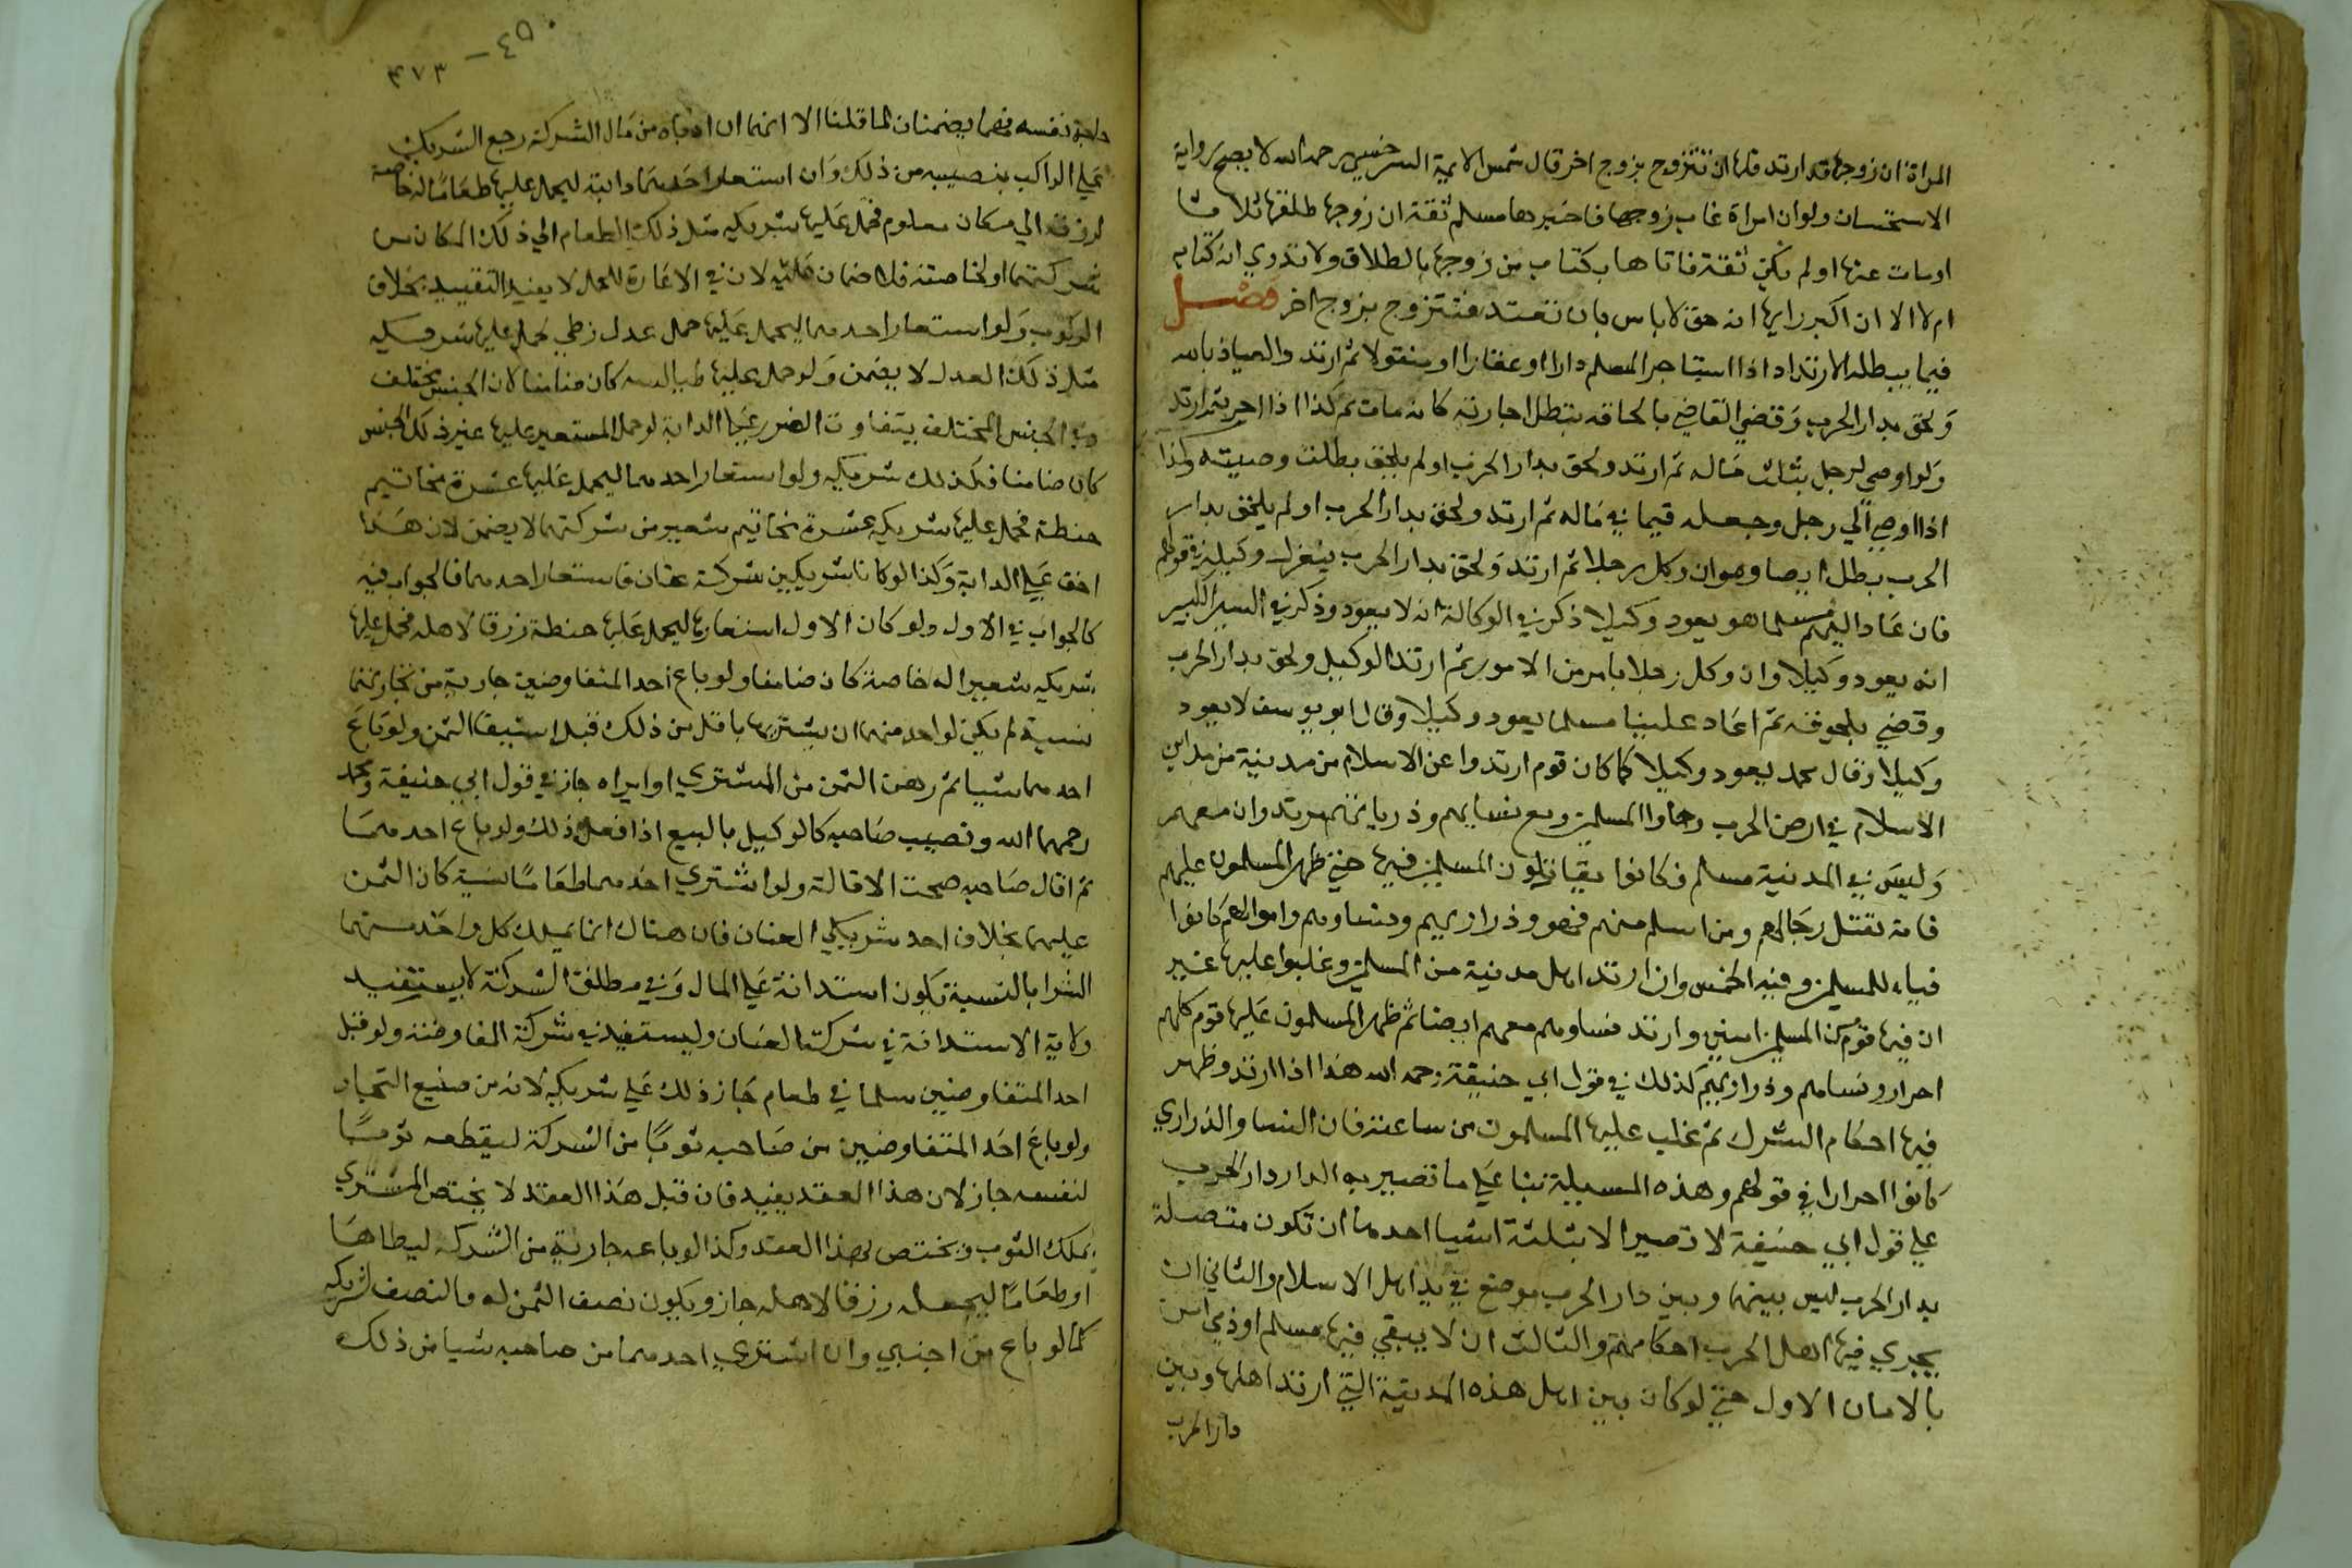 المراة ان زوجها قد ارتد فلها ان تتزوج بزوج اخر قال شمس الايمة السرخسي رحمه الله لا يصح رواية
الاستحسان ولو ان امراة غاب زوجها فاخبرها مسلم ثقة ان زوجها طلقها ثلاثا
او مات عنها او لم يكن ثقة فاتاها بكتاب من زوجها بالطلاق ولا تدري انه كتابه
ام لا الا ان اكبر رايها انه حق لا باس بان تعتد فتتزوج بزوج اخر فصل
فيما يبطله الارتداد اذا استاجر المسلم دارا او عقارا او منقولا ثم ارتد والعياذ بالله
ولحق بدار الحرب وقضي القاضي بلحاقه بتطل اجارته كانه مات ثم كذا اذا اجر ثم ارتد
ولو اوصي لرجل بثلث ماله ثم ارتد ولحق بدار الحرب او لم يلحق بطلت وصيته وكذا
اذا اوصي الي رجل وجعله قيما في ماله ثم ارتد ولحق بدار الحرب او لم يلحق بدار
الحرب بطل ايضا وهو ان وكل رجلا ثم ارتد ولحق بدار الحرب ينعزل وكيله في قولهم
فان عاد اليهم مسلما هو يعود وكيلا ذكر في الوكالة انه لا يعود وذكر في السير الكبير
انه يعود وكيلا وان وكل رجلا بامر من الامور ثم ارتد الوكيل ولحق بدار الحرب
وقضي بلحوقه ثم عاد علينا مسلما يعود وكيلا وقال ابو يوسف لا يعود
وكيلا وقال محمد يعود وكيلا كما كان قوم ارتدوا عن الاسلام من مدينة من مداين
الاسلام في ارض الحرب وحاربوا المسلمين ومع نسايهم وذرياتهم مرتدوان معهم
وليس في المدينة مسلم فكانوا يقاتلون المسلمين فيها حتي ظهر المسلمون عليهم
فانه تقتل رجالهم ومن اسلم منهم فهو حر وذراريهم ونساوهم واموالهم كانوا
فياء للمسلمين وفيه الخمس وان ارتد اهل مدينة من المسلمين وغلبوا عليها غير
ان فيها قوم من المسلمين امنين وارتد نساوهم معهم ايضا ثم ظهر المسلمون عليها قوم كلهم
احرار ونساهم وذراريهم كذلك في قول ابي حنيفة رحمه الله هذا اذا ارتد وظهر
فيها احكام الشرك ثم غلب عليها المسلمون من ساعته فان النسا والذراري
كانوا احرارا في قولهم وهذه المسيلة بنا علي ما تصير به الدار دار الحرب
علي قول ابي حنيفة لا تصير الا بثلثة اشيا احدها ان تكون متصلة
بدار الحرب ليس بينها وبين دار الحرب موضع في يد اهل الاسلام والثاني ان
يجري فيها اهل الحرب احكامهم والثالث ان لا يبقي فيها مسلم او ذمي امن
بالامان الاول حتي لو كان بين اهل هذه المدينة التي ارتد اهلها وبين
دار الحرب
٤٥٠ –
٤٧٣
حاجة نفسه فهما يضمنان لما قلنا الا انهما ان ادياه من مال الشركة رجع الشريك
علي الراكب بنصيبه من ذلك وان استعار احدهما دابة ليحمل عليها طعاما له خاصة
لرزقه الي مكان معلوم فحمل عليها شريكه مثل ذلك الطعام الي ذلك المكان من
شركتهما او لخاصته فلا ضمان عليه لان في الاعارة للحمل لا يفيد التقييد بخلاف
الركوب ولو استعار احدهما ليحمل عليها حمل عدل زطي فحمل عليها شريكه
مثل ذلك العدل لا يضمن ولو حمل عليها طيالسه كان ضامنا لان الجنس مختلف
وفي الجنس المختلف يتفاوت الضرر علي الدابة لو حمل المستعير عليها غير ذلك الجنس
كان ضامنا فكذلك شريكه ولو استعار احدهما ليحمل عليها عشرة مخاتيم
حنطة فحمل عليها شريكه عشرة مخاتيم شعير من شركتهما لا يضمن لان هذا
اخف علي الدابة وكذا لو كانا شريكين شركة عنان فاستعار احدهما فالجواب فيه
كالجواب في الاول ولو كان الاول استعارها ليحمل عليها حنطة رزقا لاهله فحمل عليها
شريكه شعيرا له خاصة كان ضامنا ولو باع احد المتفاوضين جارية من تجارتهما
نسية لم يكن لواحد منهما ان يشتريها باقل من ذلك قبل استيفا الثمن ولو باع
احدهما شيا ثم رهن الثمن من المشتري او ابراه جاز في قول ابي حنيفة ومحمد
رحمهما الله ونصيب صاحبه كالوكيل بالبيع اذا فعل ذلك ولو باع احدهما
ثم اقال صاحبه صحت الاقالة ولو اشتري احدهما طعاما نسية كان الثمن
عليهما بخلاف احد شريكي العنان فان هناك انما يملك كل واحد منهما
الشرا بالنسية تكون استدانة علي المال وفي مطلق الشركة لا يستفيد
ولاية الاستدانة في شركة العنان وليستفيد في شركة المفاوضة ولو قبل
احد المتفاوضين سلما في طعام جاز ذلك علي شريكه لانه من صنيع التجار
ولو باع احد المتفاوضين من صاحبه ثوبا من الشركة ليقطعه ثوبا
لنفسه جاز لان هذا العقد يفيد فان قبل هذا العقد لا يختص المشتري
بملك الثوب ويختص بهذا العقد وكذا لو باعه جارية من الشركه ليطاها
او طعاما ليجعله رزقا لاهله جاز ويكون نصف الثمن له والنصف لشريكه
كما لو باع من اجنبي وان اشتري احدهما من صاحبه شيا من ذلك